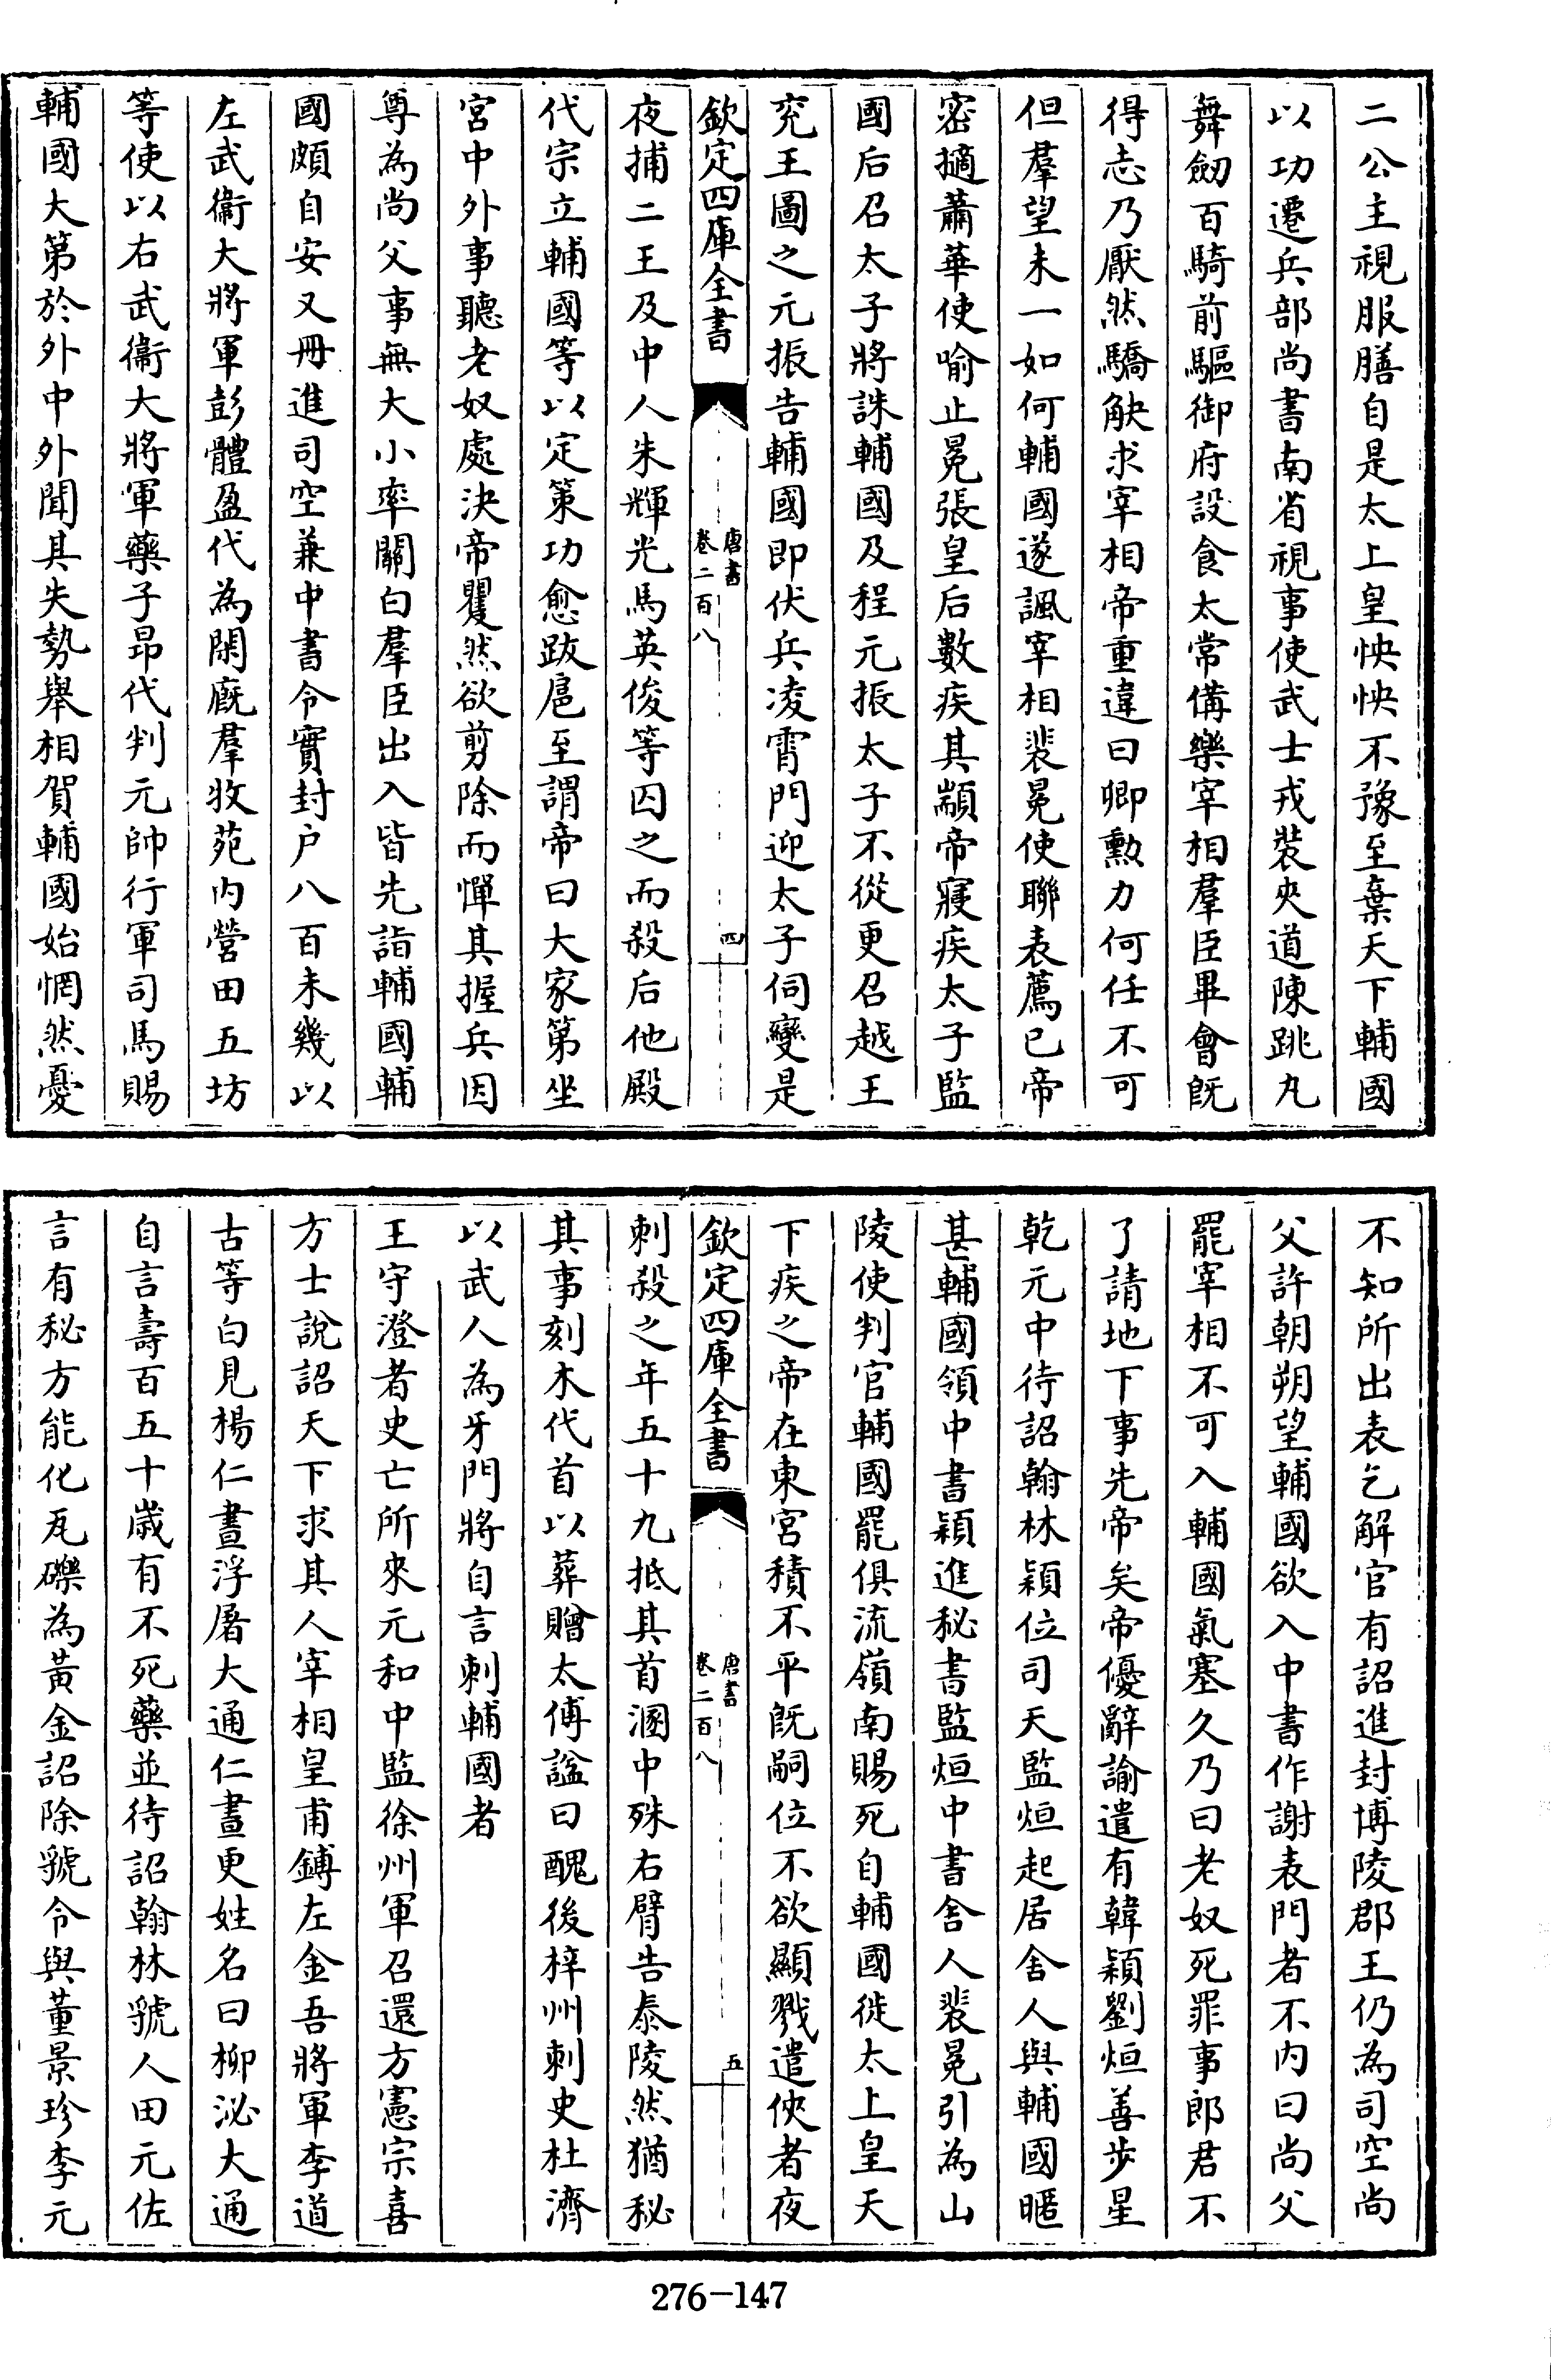 二公主視服膳自是太上皇怏怏不豫至棄天下輔國
以功遷兵部尚書南省視事使武士戎裝夾道陳跳丸
舞劒百騎前驅御府設食太常備樂宰相羣臣畢會既
得志乃厭然驕觖求宰相帝重違曰卿勲力何任不可
但羣望未一如何輔國遂諷宰相裴冕使聯表薦已帝
密擿蕭華使喻止冕張皇后數疾其顓帝寢疾太子監
國后召太子將誅輔國及程元振太子不從更召越王
兖王圖之元振告輔國即伏兵凌霄門迎太子伺變是
欽定四庫全書
唐書
卷二百八
四
夜捕二王及中人朱輝光馬英俊等囚之而殺后他殿
代宗立輔國等以定策功愈跋扈至謂帝曰大家第坐
宮中外事聽老奴處決帝矍然欲剪除而憚其握兵因
尊為尚父事無大小率關白羣臣出入皆先詣輔國輔
國頗自安又冊進司空兼中書令實封户八百未幾以
左武衞大將軍彭體盈代為閑廐羣牧苑内營田五坊
等使以右武衞大將軍藥子昂代判元帥行軍司馬賜
輔國大第於外中外聞其失勢舉相賀輔國始惘然憂
不知所出表乞解官有詔進封博陵郡王仍為司空尚
父許朝朔望輔國欲入中書作謝表門者不内曰尚父
罷宰相不可入輔國氣塞久乃曰老奴死罪事郎君不
了請地下事先帝矣帝優辭諭遣有韓潁劉烜善步星
乾元中待詔翰林穎位司天監烜起居舍人與輔國暱
甚輔國領中書穎進秘書監烜中書舍人裴冕引為山
陵使判官輔國罷俱流嶺南賜死自輔國徙太上皇天
下疾之帝在東宮積不平既嗣位不欲顯戮遣俠者夜
欽定四庫全書
唐書
卷二百八
五
刺殺之年五十九抵其首溷中殊右臂告泰陵然猶秘
其事刻木代首以葬贈太傅諡曰醜後梓州刺史杜濟
以武人為牙門將自言刺輔國者
王守澄者史亡所來元和中監徐州軍召還方憲宗喜
方士說詔天下求其人宰相皇甫鎛左金吾將軍李道
古等白見楊仁晝浮屠大通仁晝更姓名曰柳泌大通
自言壽百五十歲有不死藥並待詔翰林虢人田元佐
言有秘方能化瓦礫為黃金詔除虢令與董景珍李元
276-147